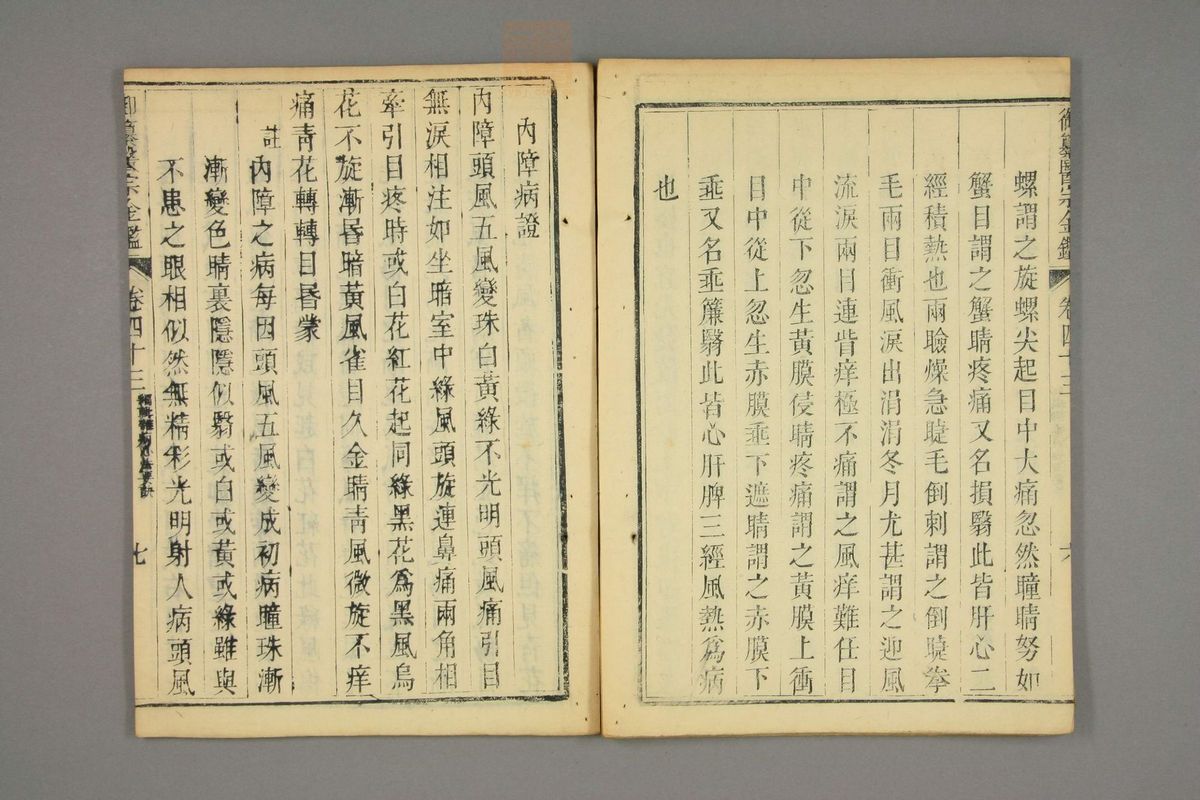 御纂醫宗金鑑 卷四十三 六
螺謂之旋螺尖起目中大痛忽然瞳睛努如
蟹目謂之蟹睛疼痛又名損翳此皆肝心二
經積熱也兩瞼燥急睫毛倒刺謂之倒睫拳
毛兩目衝風淚出涓涓冬月尤甚謂之迎風
流淚兩目連眥痒極不痛謂之風痒難任目
中從下忽生黃膜侵睛疼痛謂之黃膜上衝
目中從上忽生赤膜垂下遮睛謂之赤膜下
垂又名垂簾翳此皆心肝脾三經風熱為病
也
內障病證
內障頭風五風變珠白黃綠不光明頭風痛引目
無淚相注如坐暗室中綠風頭旋連鼻痛兩角相
牽引目疼時或白花紅花起同綠黑花為黑風烏
花不旋漸昏暗黃風雀目久金睛青風微旋不痒
痛青花轉轉目昏蒙
註
內障之病每因頭風五風變成初病瞳珠漸
漸變色睛裏隱隱似翳或白或黃或綠雖與
不患之眼相似然無精彩光明射人病頭風
御纂醫宗金鑑 卷四十三 七